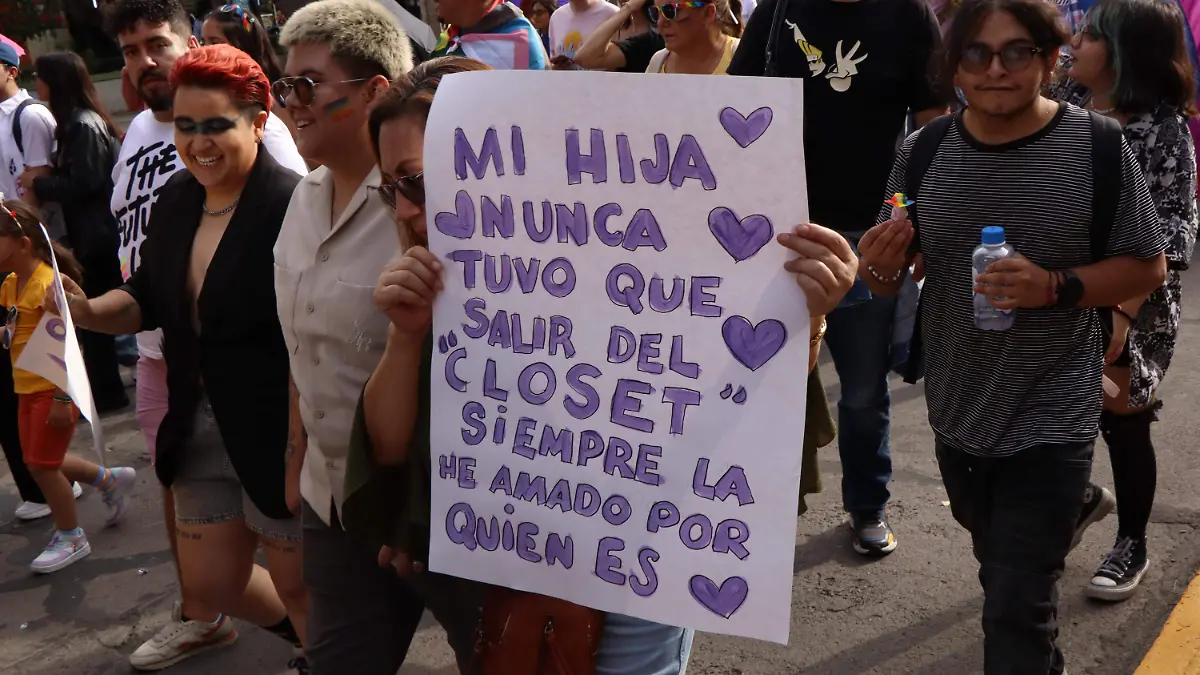 MI HIJA
NUNCA
TUVO QUE
SALIR DEL
"CLOSET"
SiEMPRE LA
HE AMADO POR
QUIEN ES
THE
FUTURE